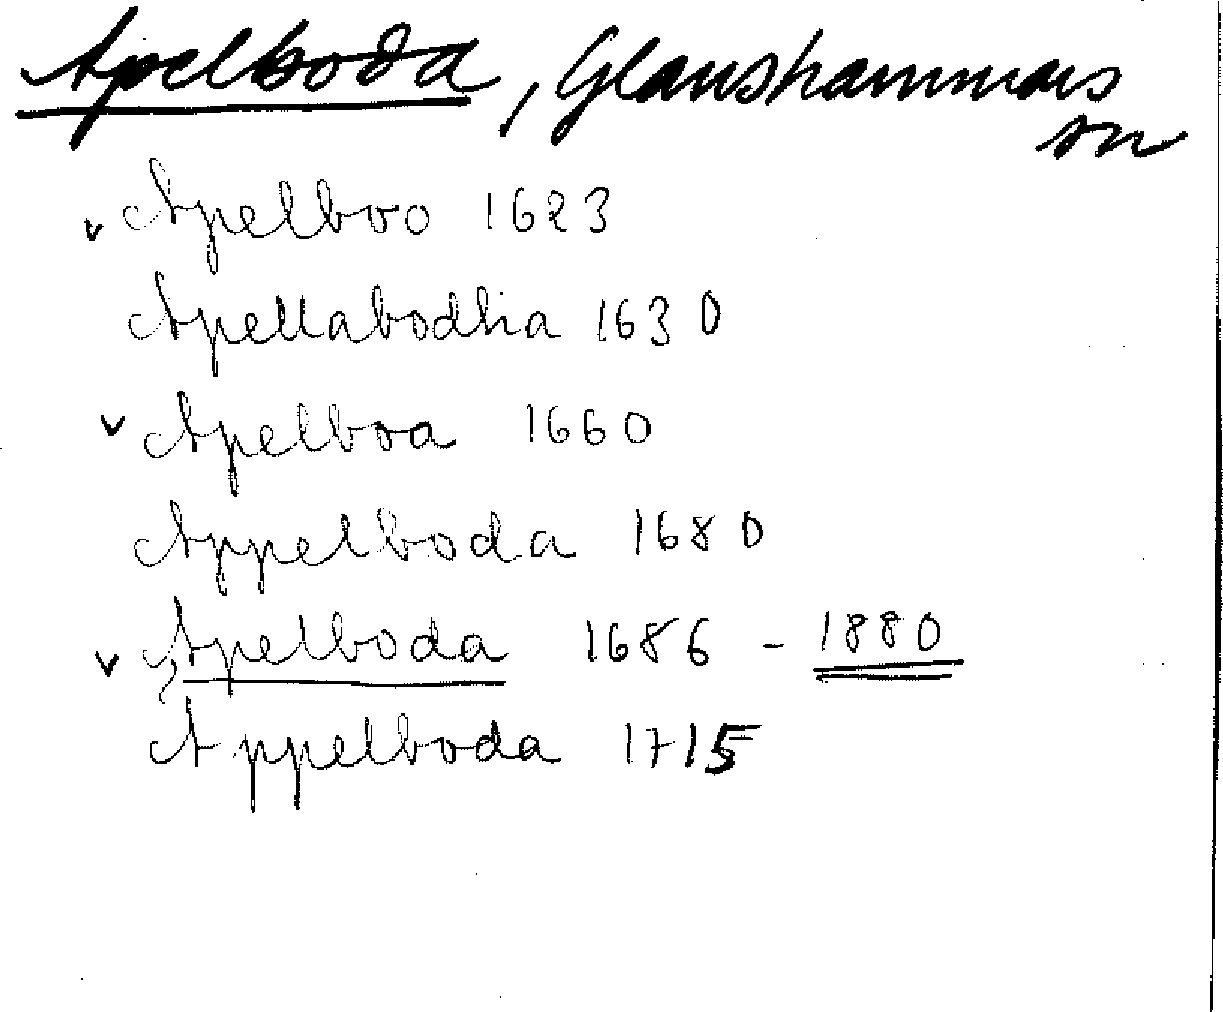 Apelboda, Glanshammars
sn
v Apelboo 1623
Apellabodha 1630
v Apelboa 1660
Appelboda 1680
v Apelboda 1686 - 1880
Appelboda 1715